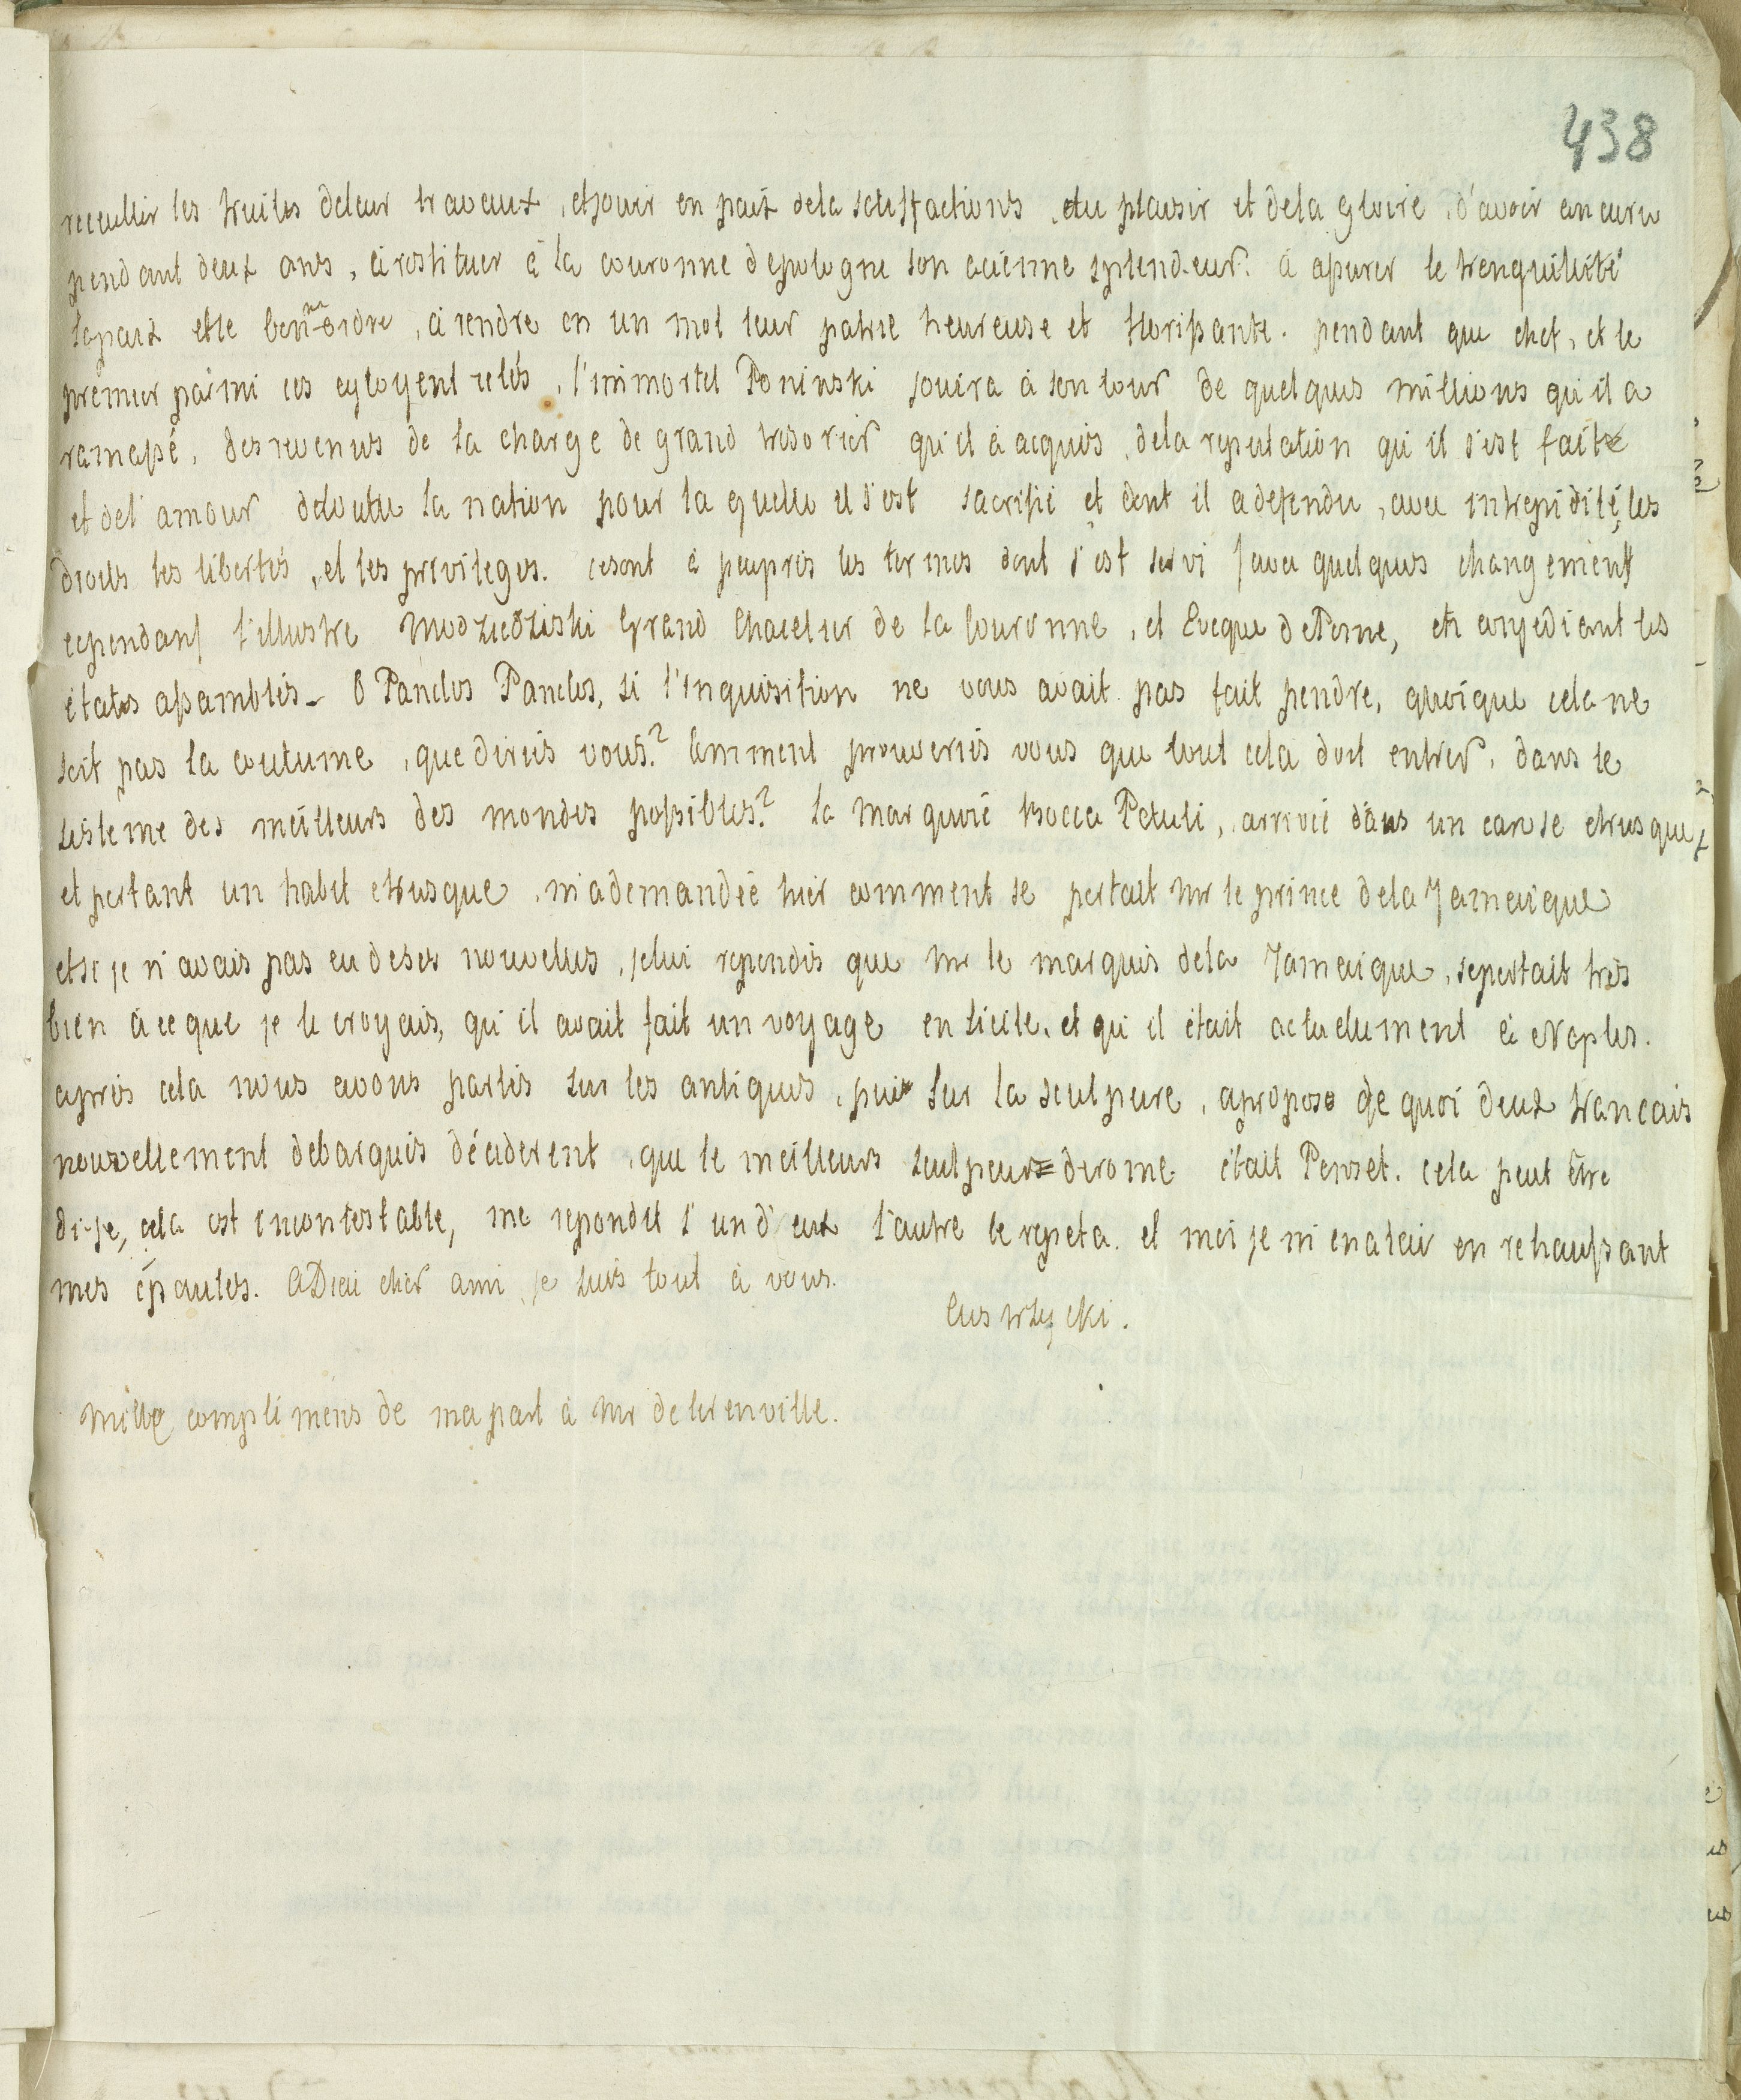 438
receuillir les fruits deleur travaux, etjouir en paix dela satisffactions, du plaisir et dela gloire, d'avoir encuru
pendant deux ans, à restituer à la couronne depologne son aciénne splendeur. à assurer le trenquilité
lapaix etle bon ordre, à rendre en un mot leur patrie heureuse et florissante. pendant que chef, et le
premier parmi ces cytoyent zelés, l'immortel Poninski jouira à son tour de quelques millions qu'il a
ramassé, des revenus de la charge de grand tresorier qu'il à acquis, dela reputation qu'il s'est faite
et del'amour detoutte la nation pour la quelle il s'est sacrifié et dont il adefendu, avec intrepidité, les
droits les libertés, et les privileges. cesont à peuprés les termes dont s'est servi (avec quelques changement
cependant) l'illustre Modziedziski Grand Chacelier de la Couronne, et Eveque dePosne, en congediant les
états assamblés_ O Panclos Panclos, si l'inquisition ne vous avait pas fait pendre, quoique cela ne
soit pas la coutume, que diriés vous? Comment prouveriés vous que tout cela doit entrer, dans le
sisteme des meilleurs des mondes possibles? La marquise Bocca Petuli, arrivée dans un carose etrusque,
et portant un habit etrusque, m'ademandée hier comment se portait Mr le prince dela Jamaique
etsi je n'avais pas eu deses nouvelles, jelui repondis que Mr le marquis dela Jamaique, seportait trés
bien à ce que je le croyais, qu'il avait fait un voyage en Sicile, et qu'il était actuelement à Naples.
aprés cela nous avons parlés sur les antiques, puis sur la sculpure, apropos de quoi deux francais
nouvellement debarqués déciderent, que le meilleurs sculpeur derome était Penset. cela peut être
di-je, cela est incontestable, me repondit l'un d'eux l'autre le repeta. et moi je m'enalai en rehaussant
mes épaules. ADieu cher ami, je suis tout à vous.
Custrzycki.
Mille complimens de mapart à Mr de terenville.